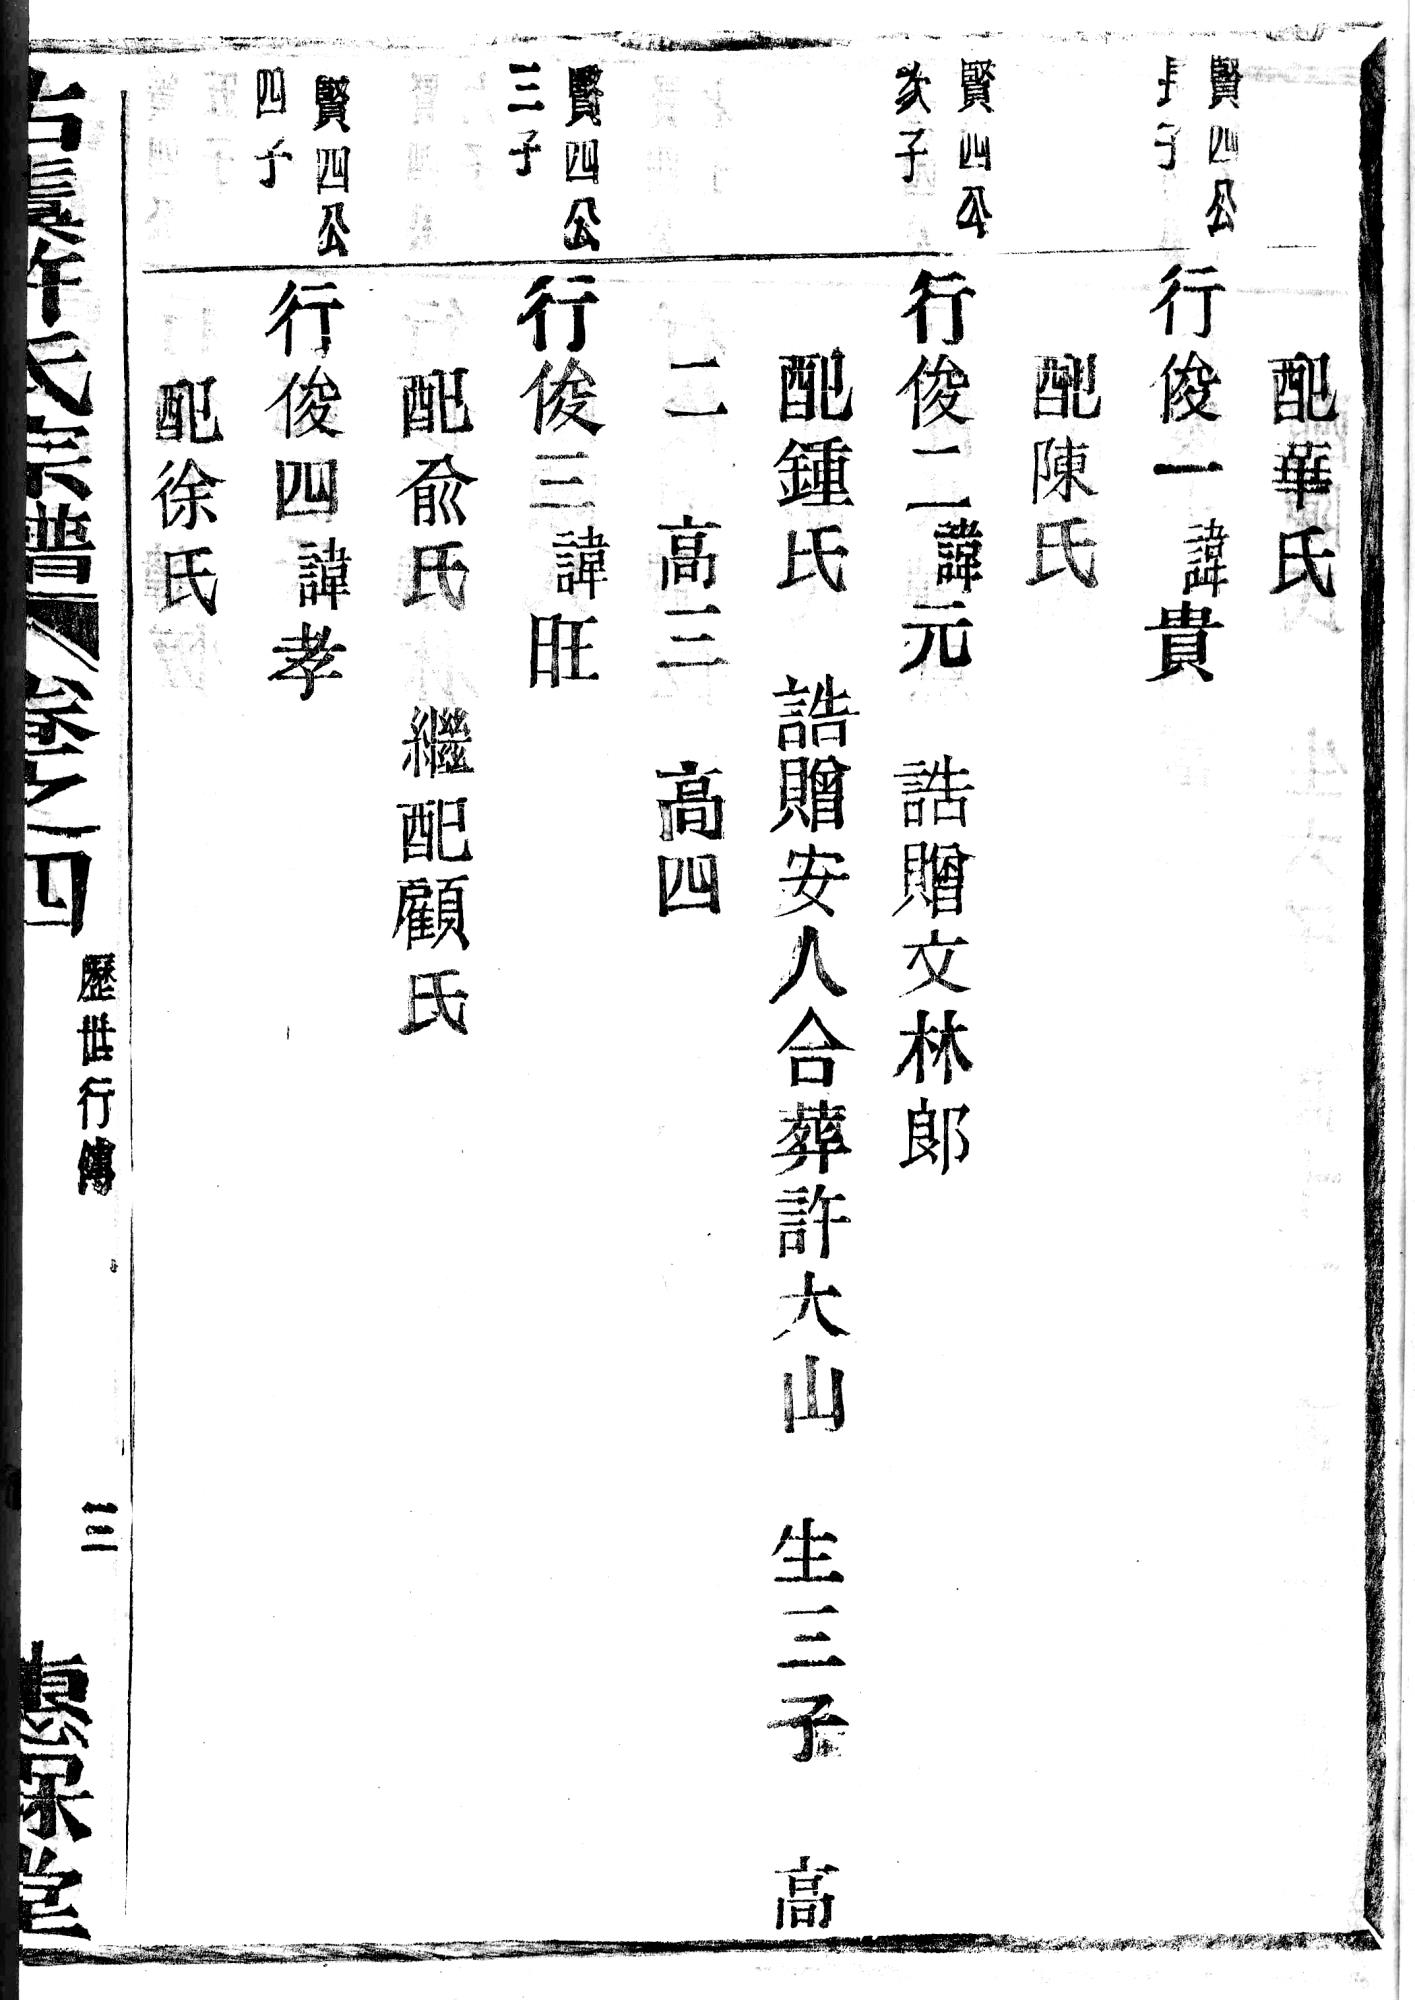 配華氏
賢四公
長子
行俊一諱貴
配陳氏
賢四公
次子
行俊二諱元　誥贈文林郎
配鍾氏　誥贈安人合葬許大山　生三子　高
二　高三　高四
賢四公
三子
行俊三諱旺
配俞氏　繼配顧氏
賢四公
四子
行俊四諱孝
配徐氏
古虞許氏宗譜　卷之四　歷世行傳　三　惠保堂